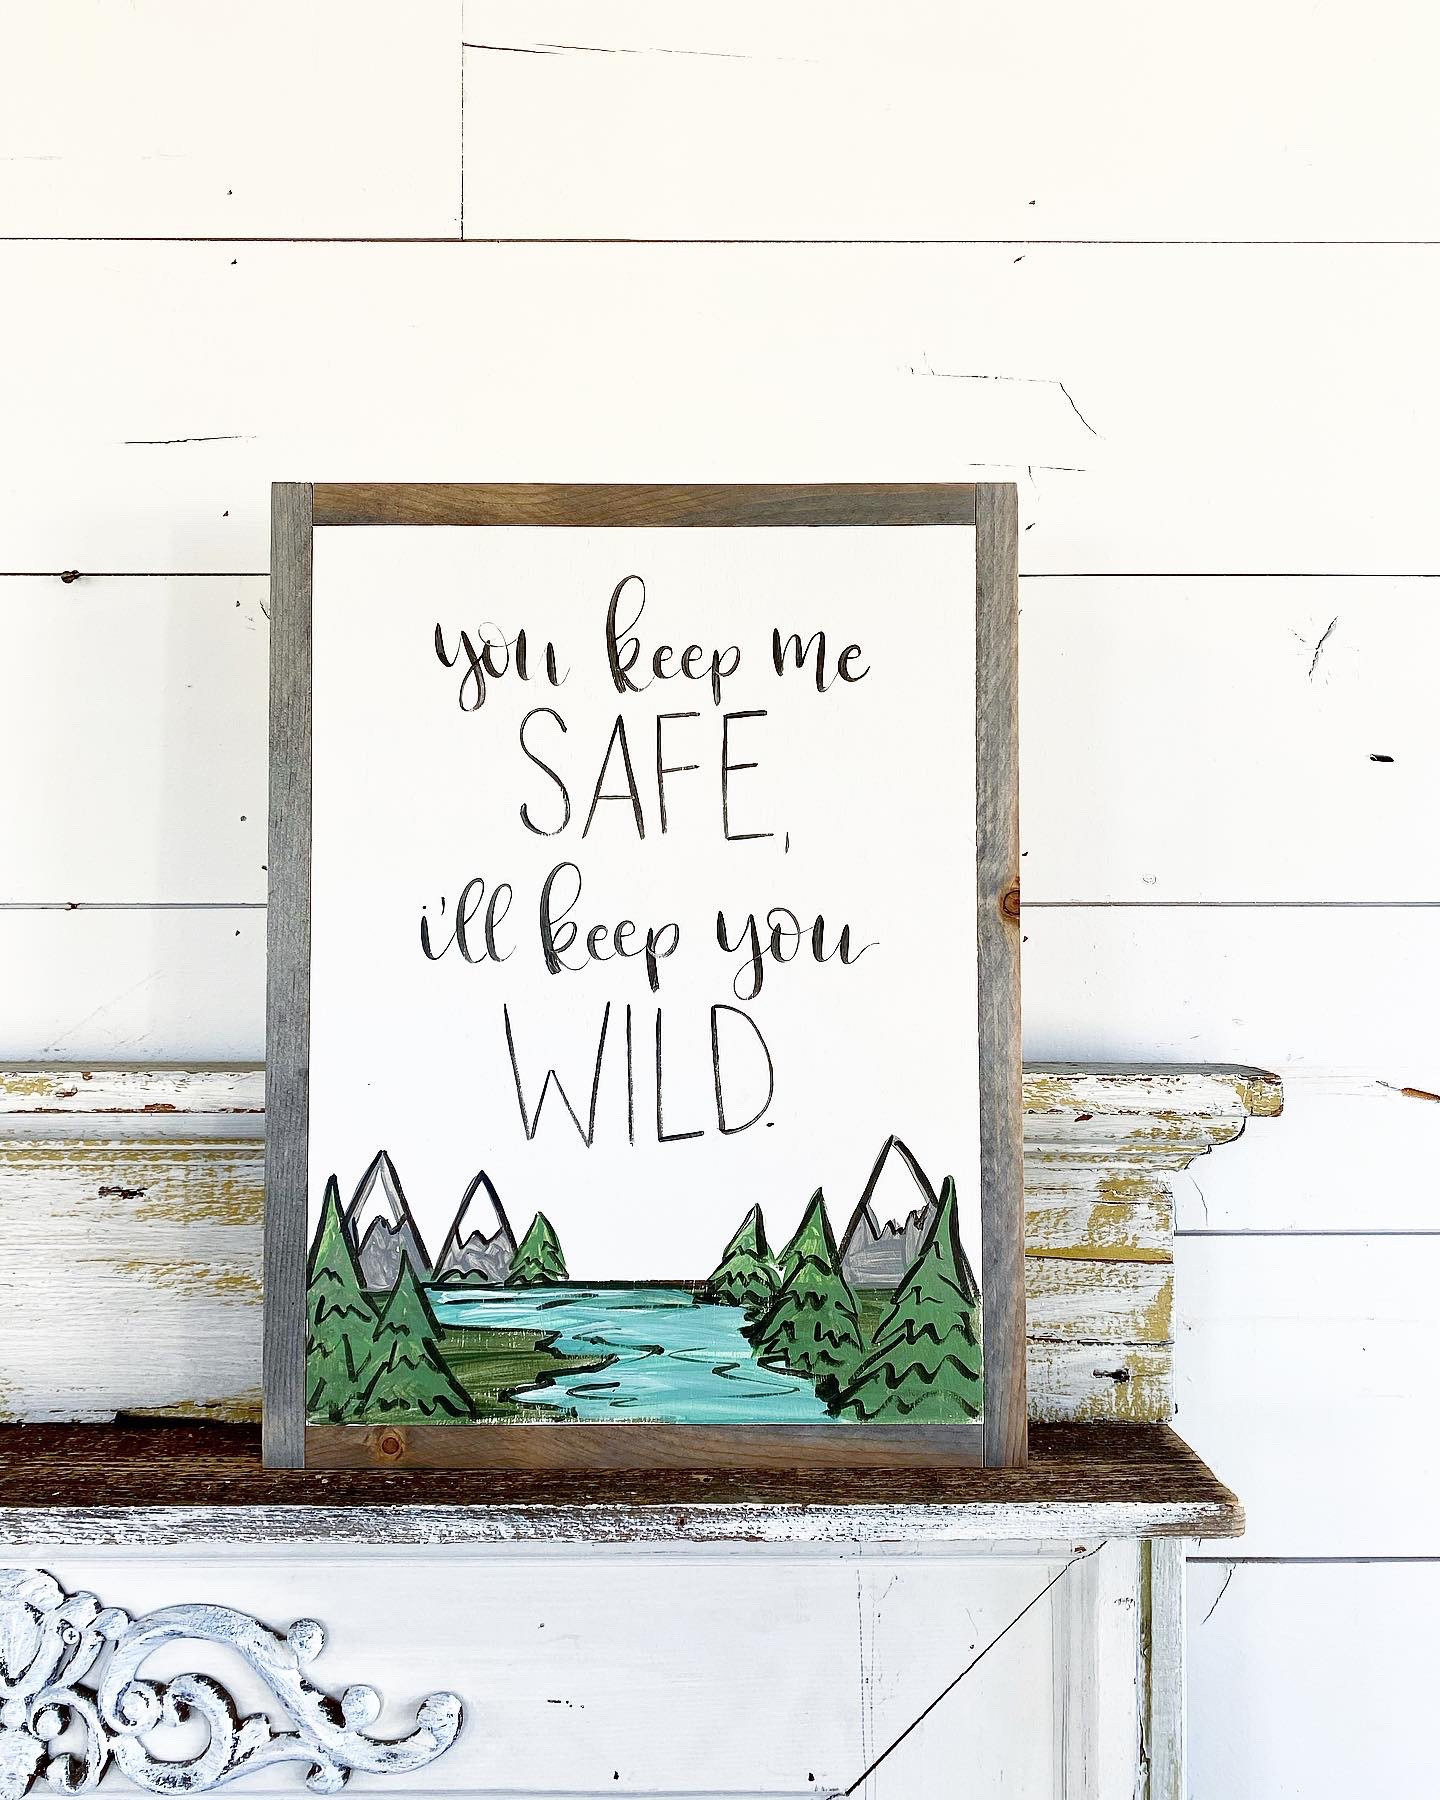 you keep me
SAFE,
i'll keep you
WILD.